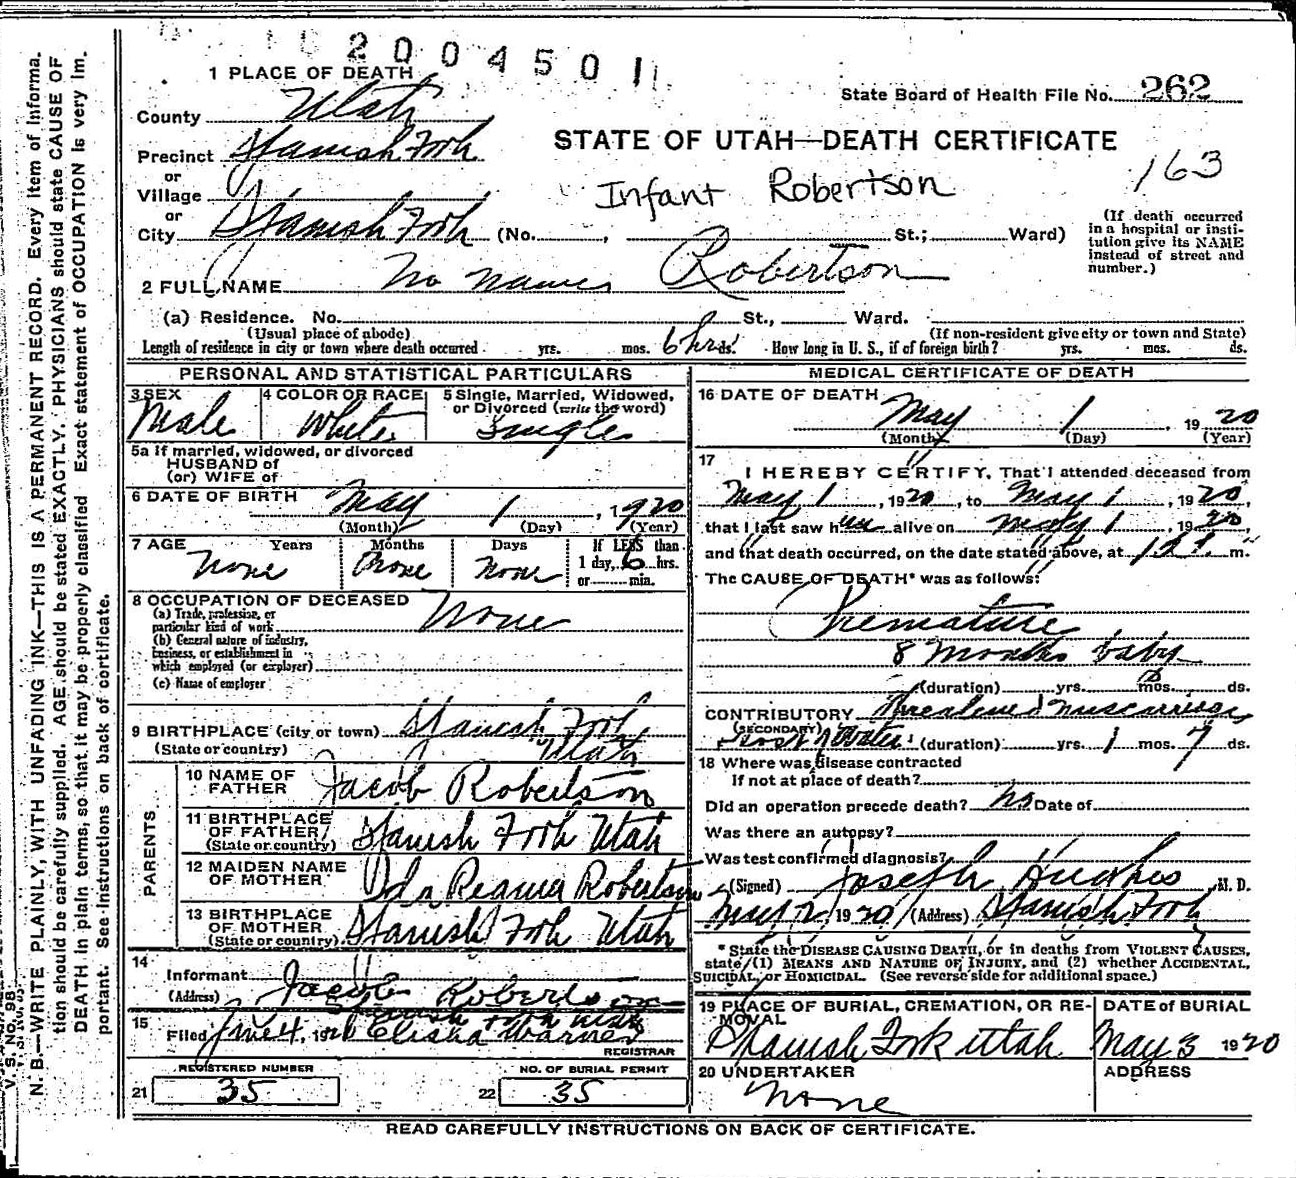 2004501
1 PLACE OF DEATH
State Board of Health File No. 262
County Utah
STATE OF UTAH—DEATH CERTIFICATE
163
Precinct Spanish Fork
or
Village
Infant Robertson
or
City Spanish Fork (No. , St.; Ward)
(If death occurred
in a hospital or insti-
tution give its NAME
instead of street and
number.)
2 FULL NAME No name Robertson
(a) Residence. No. St., Ward.
(Usual place of abode) (If non-resident give city or town and State)
Length of residence in city or town where death occurred yrs. mos. 6 hrs ds. How long in U. S., if of foreign birth? yrs. mos. ds.
PERSONAL AND STATISTICAL PARTICULARS
3 SEX Male
4 COLOR OR RACE White
5 Single, Married, Widowed,
or Divorced (write the word)
Single
5a If married, widowed, or divorced
HUSBAND of
(or) WIFE of
6 DATE OF BIRTH May 1, 1920
(Month) (Day) (Year)
7 AGE Years Months Days If LESS than
None None None 1 day, 6 hrs.
or min.
8 OCCUPATION OF DECEASED None
(a) Trade, profession, or
particular kind of work
(b) General nature of industry,
business, or establishment in
which employed (or employer)
(c) Name of employer
9 BIRTHPLACE (city or town) Spanish Fork
(State or country) Utah
PARENTS
10 NAME OF
FATHER Jacob Robertson
11 BIRTHPLACE
OF FATHER
(State or country) Spanish Fork Utah
12 MAIDEN NAME
OF MOTHER Robertson
13 BIRTHPLACE
OF MOTHER
(State or country) Spanish Fork Utah
14
Informant Jacob Robertson
(Address) Spanish Fork Utah
15
Filed June 4, 1920 Elisha Warner
REGISTRAR
REGISTERED NUMBER
21 35
NO. OF BURIAL PERMIT
22 35
MEDICAL CERTIFICATE OF DEATH
16 DATE OF DEATH
May 1, 1920
(Month) (Day) (Year)
17
I HEREBY CERTIFY, That I attended deceased from
May 1, 1920, to May 1, 1920,
that I last saw him alive on May 1, 1920
and that death occurred, on the date stated above, at m.
The CAUSE OF DEATH* was as follows:
Premature
8 months baby
(duration) yrs. mos. ds.
CONTRIBUTORY
(SECONDARY)
(duration) yrs. 1 mos. 7 ds.
18 Where was disease contracted
If not at place of death?
Did an operation precede death? No Date of
Was there an autopsy?
Was test confirmed diagnosis?
(Signed) Joseph Hughes, M. D.
May 2, 1920 (Address) Spanish Fork
* State the DISEASE CAUSING DEATH, or in deaths from VIOLENT CAUSES,
state (1) MEANS AND NATURE OF INJURY, and (2) whether ACCIDENTAL,
SUICIDAL, or HOMICIDAL. (See reverse side for additional space.)
19 PLACE OF BURIAL, CREMATION, OR RE-
MOVAL
Spanish Fork Utah
DATE OF BURIAL
May 3 1920
20 UNDERTAKER
None
ADDRESS
READ CAREFULLY INSTRUCTIONS ON BACK OF CERTIFICATE.
N. B.—WRITE PLAINLY, WITH UNFADING INK—THIS IS A PERMANENT RECORD. Every item of informa-
tion should be carefully supplied. AGE should be stated EXACTLY. PHYSICIANS should state CAUSE OF
DEATH in plain terms, so that it may be properly classified. Exact statement of OCCUPATION is very im-
portant. See Instructions on back of certificate.
V. S. No. 98